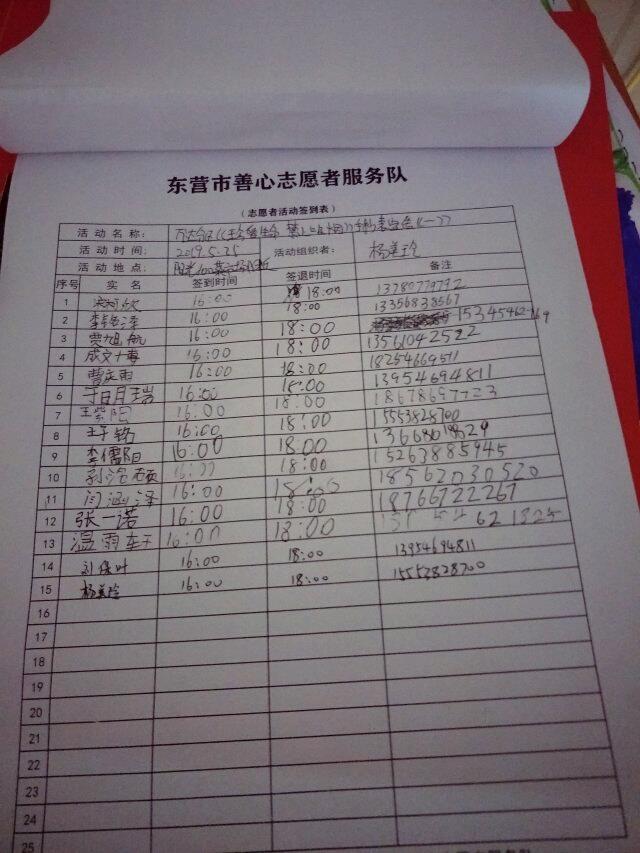 东营市善心志愿者服务队
(志愿者活动签到表)
活动名称:
活动时间: 2019.5.25 活动组织者: 杨美玲
活动地点:
序号 实名 签到时间 签退时间 备注
1 16:00 18:00 13780779792
2 李铭泽 16:00 18:00 13356838567
3 贾旭航 16:00 18:00 15345462169
4 成文博 16:00 18:00 13561042522
5 曹庆雨 16:00 18:00 18254669511
6 于明瑞 16:00 18:00 13954694811
7 王紫阳 16:00 18:00 18678697723
8 王子铭 16:00 18:00 15553828700
9 李儒阳 16:00 18:00
10 16:00 18:00 15263885945
11 闫涵泽 16:00 18562030520
12 张一诺 16:00 18:00 18766722267
13 温雨轩 16:00 18:00
14 刘保叶 16:00 18:00 13954694811
15 杨美玲 16:00 18:00 15553828700
16
17
18
19
20
21
22
23
24
25